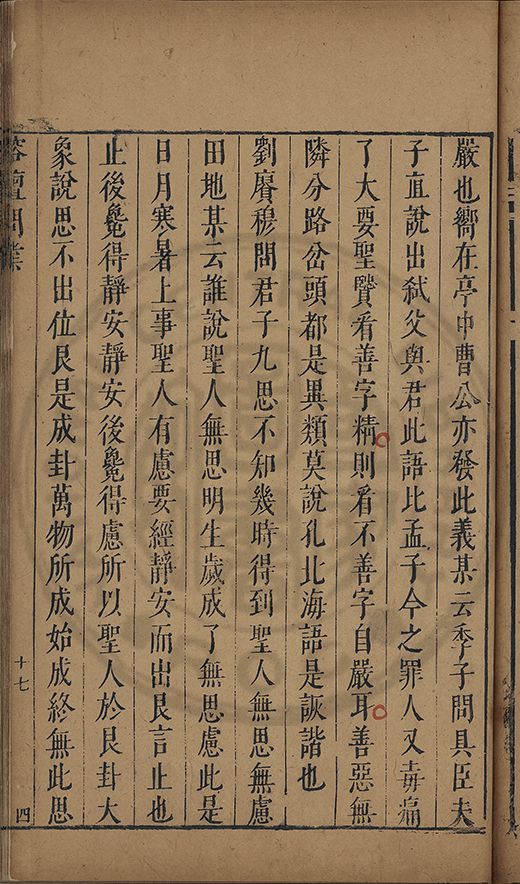 嚴也嚮在亭中曹公亦發此義某云季子問具臣夫
子直說出弒父與君此語比孟子今之罪人又毒痛
了大要聖賢看善字精則看不善字自嚴耳善惡無
隣分路岔頭都是異類莫說孔北海語是詼諧也
劉賡穆問君子九思不知幾時得到聖人無思無慮
田地某云誰說聖人無思明生歲成了無思慮此是
日月寒暑上事聖人有慮要經靜安而出艮言止也
止後纔得靜安靜安後纔得慮所以聖人於艮卦大
象說思不出位艮是成卦萬物所成始成終無此思
榕壇問業
十七
四